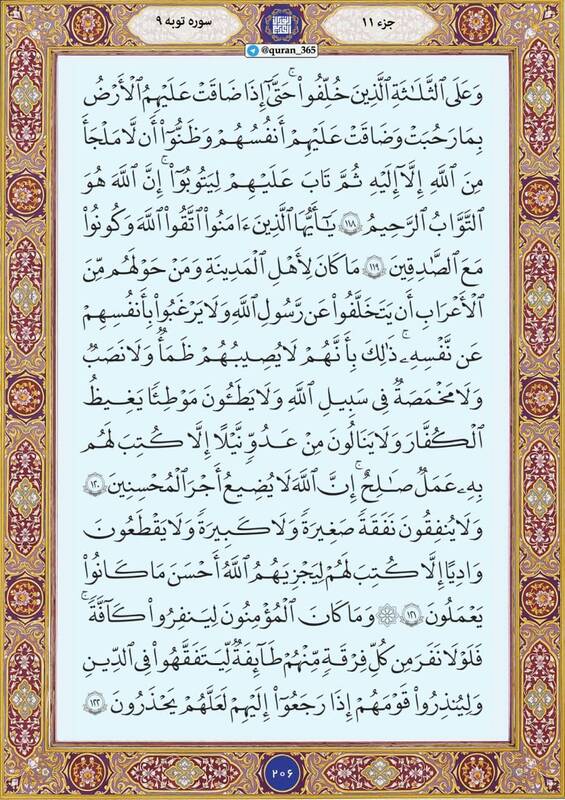 جزء ۱۱
سوره توبه ۹
@quran_365
وَعَلَى ٱلثَّلَـٰثَةِ ٱلَّذِينَ خُلِّفُوا۟ حَتَّىٰٓ إِذَا ضَاقَتْ عَلَيْهِمُ ٱلْأَرْضُ
بِمَا رَحُبَتْ وَضَاقَتْ عَلَيْهِمْ أَنفُسُهُمْ وَظَنُّوٓا۟ أَن لَّا مَلْجَأَ
مِنَ ٱللَّهِ إِلَّآ إِلَيْهِ ثُمَّ تَابَ عَلَيْهِمْ لِيَتُوبُوٓا۟ ۚ إِنَّ ٱللَّهَ هُوَ
ٱلتَّوَّابُ ٱلرَّحِيمُ ۝١١٨ يَـٰٓأَيُّهَا ٱلَّذِينَ ءَامَنُوا۟ ٱتَّقُوا۟ ٱللَّهَ وَكُونُوا۟
مَعَ ٱلصَّـٰدِقِينَ ۝١١٩ مَا كَانَ لِأَهْلِ ٱلْمَدِينَةِ وَمَنْ حَوْلَهُم مِّنَ
ٱلْأَعْرَابِ أَن يَتَخَلَّفُوا۟ عَن رَّسُولِ ٱللَّهِ وَلَا يَرْغَبُوا۟ بِأَنفُسِهِمْ
عَن نَّفْسِهِۦ ۚ ذَٰلِكَ بِأَنَّهُمْ لَا يُصِيبُهُمْ ظَمَأٌ وَلَا نَصَبٌ
وَلَا مَخْمَصَةٌ فِى سَبِيلِ ٱللَّهِ وَلَا يَطَـُٔونَ مَوْطِئًا يَغِيظُ
ٱلْكُفَّارَ وَلَا يَنَالُونَ مِنْ عَدُوٍّ نَّيْلًا إِلَّا كُتِبَ لَهُم
بِهِۦ عَمَلٌ صَـٰلِحٌ ۚ إِنَّ ٱللَّهَ لَا يُضِيعُ أَجْرَ ٱلْمُحْسِنِينَ ۝١٢٠
وَلَا يُنفِقُونَ نَفَقَةً صَغِيرَةً وَلَا كَبِيرَةً وَلَا يَقْطَعُونَ
وَادِيًا إِلَّا كُتِبَ لَهُمْ لِيَجْزِيَهُمُ ٱللَّهُ أَحْسَنَ مَا كَانُوا۟
يَعْمَلُونَ ۝١٢١ ۞ وَمَا كَانَ ٱلْمُؤْمِنُونَ لِيَنفِرُوا۟ كَآفَّةً ۚ
فَلَوْلَا نَفَرَ مِن كُلِّ فِرْقَةٍ مِّنْهُمْ طَآئِفَةٌ لِّيَتَفَقَّهُوا۟ فِى ٱلدِّينِ
وَلِيُنذِرُوا۟ قَوْمَهُمْ إِذَا رَجَعُوٓا۟ إِلَيْهِمْ لَعَلَّهُمْ يَحْذَرُونَ ۝١٢٢
۲۰۶